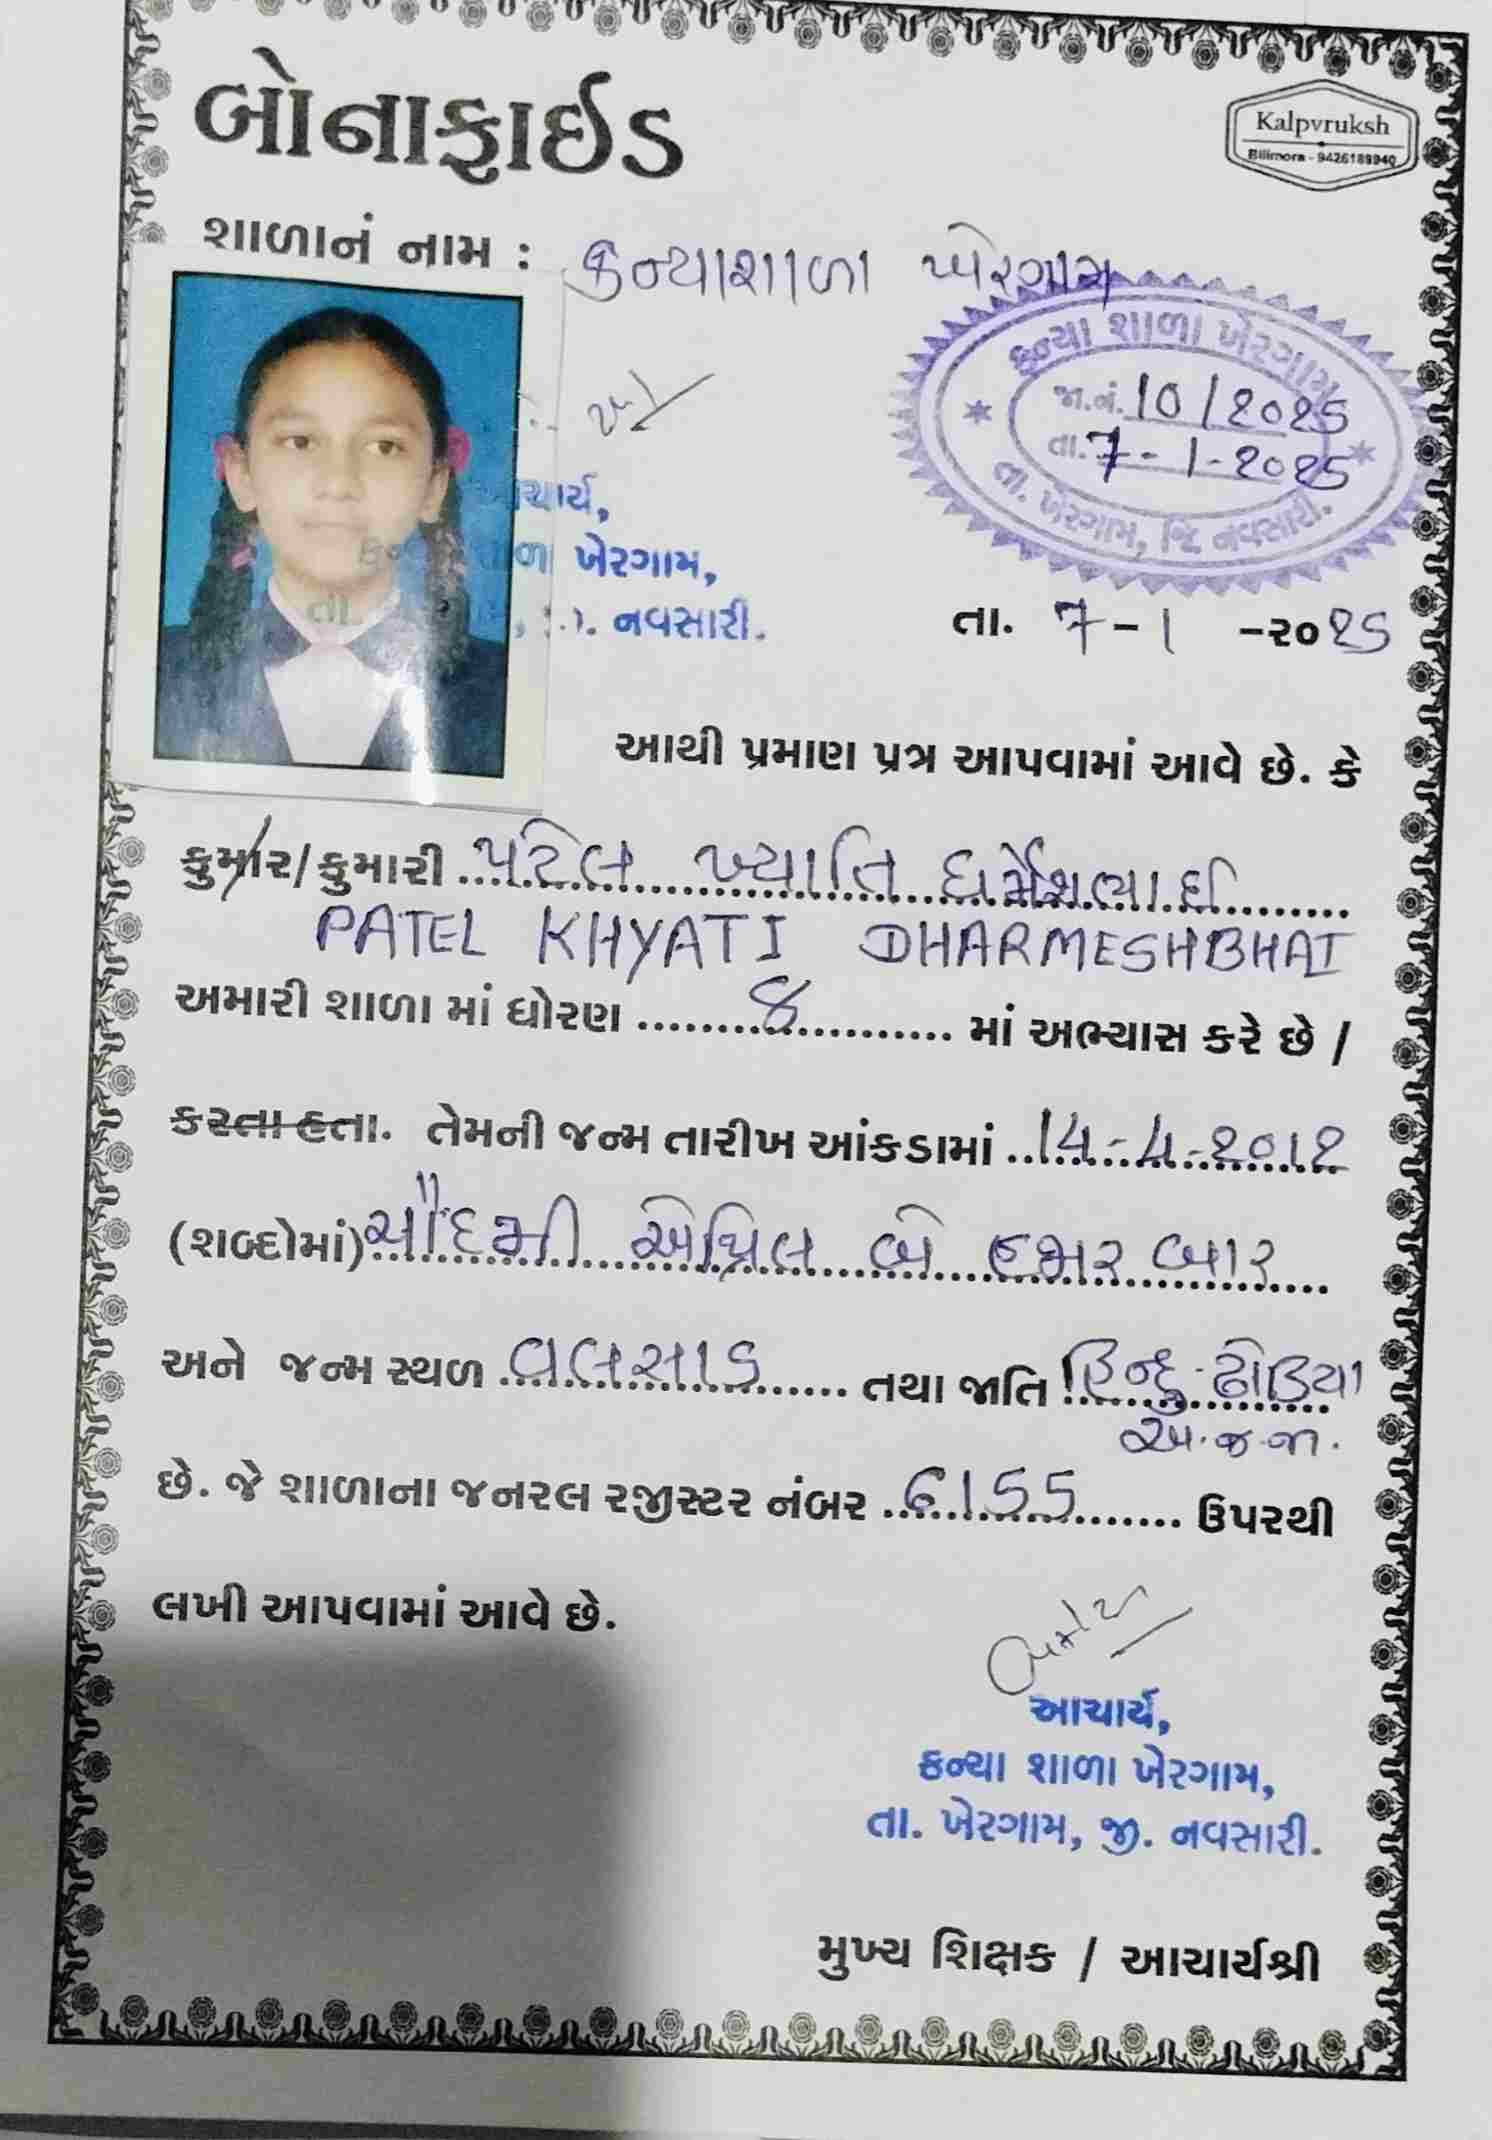 બોનાફાઈડ
Kalpvruksh
Bilimora - 9426189940
શાળાનં નામ : કન્યાશાળા ખેરગામ
કન્યા શાળા ખેરગામ
જા.નં. 10/2025
તા. 7-1-2025
તા. ખેરગામ, જિ નવસારી.
ખેરગામ,
નવસારી.
તા. 7-1 -૨૦૨૫
આથી પ્રમાણ પત્ર આપવામાં આવે છે. કે
કુમાર/કુમારી પટેલ ખ્યાતિ ધર્મેશભાઈ
PATEL KHYATI DHARMESHBHAI
અમારી શાળા માં ધોરણ 8 માં અભ્યાસ કરે છે /
કરતા હતા. તેમની જન્મ તારીખ આંકડામાં 14-4-2012
(શબ્દોમાં) ચૌદમી એપ્રિલ બે હજાર બાર
અને જન્મ સ્થળ વલસાડ તથા જાતિ હિન્દુ-ઢોડિયા
અ.જ.જા.
છે. જે શાળાના જનરલ રજીસ્ટર નંબર 6155 ઉપરથી
લખી આપવામાં આવે છે.
આચાર્ય,
કન્યા શાળા ખેરગામ,
તા. ખેરગામ, જી. નવસારી.
મુખ્ય શિક્ષક / આચાર્યશ્રી